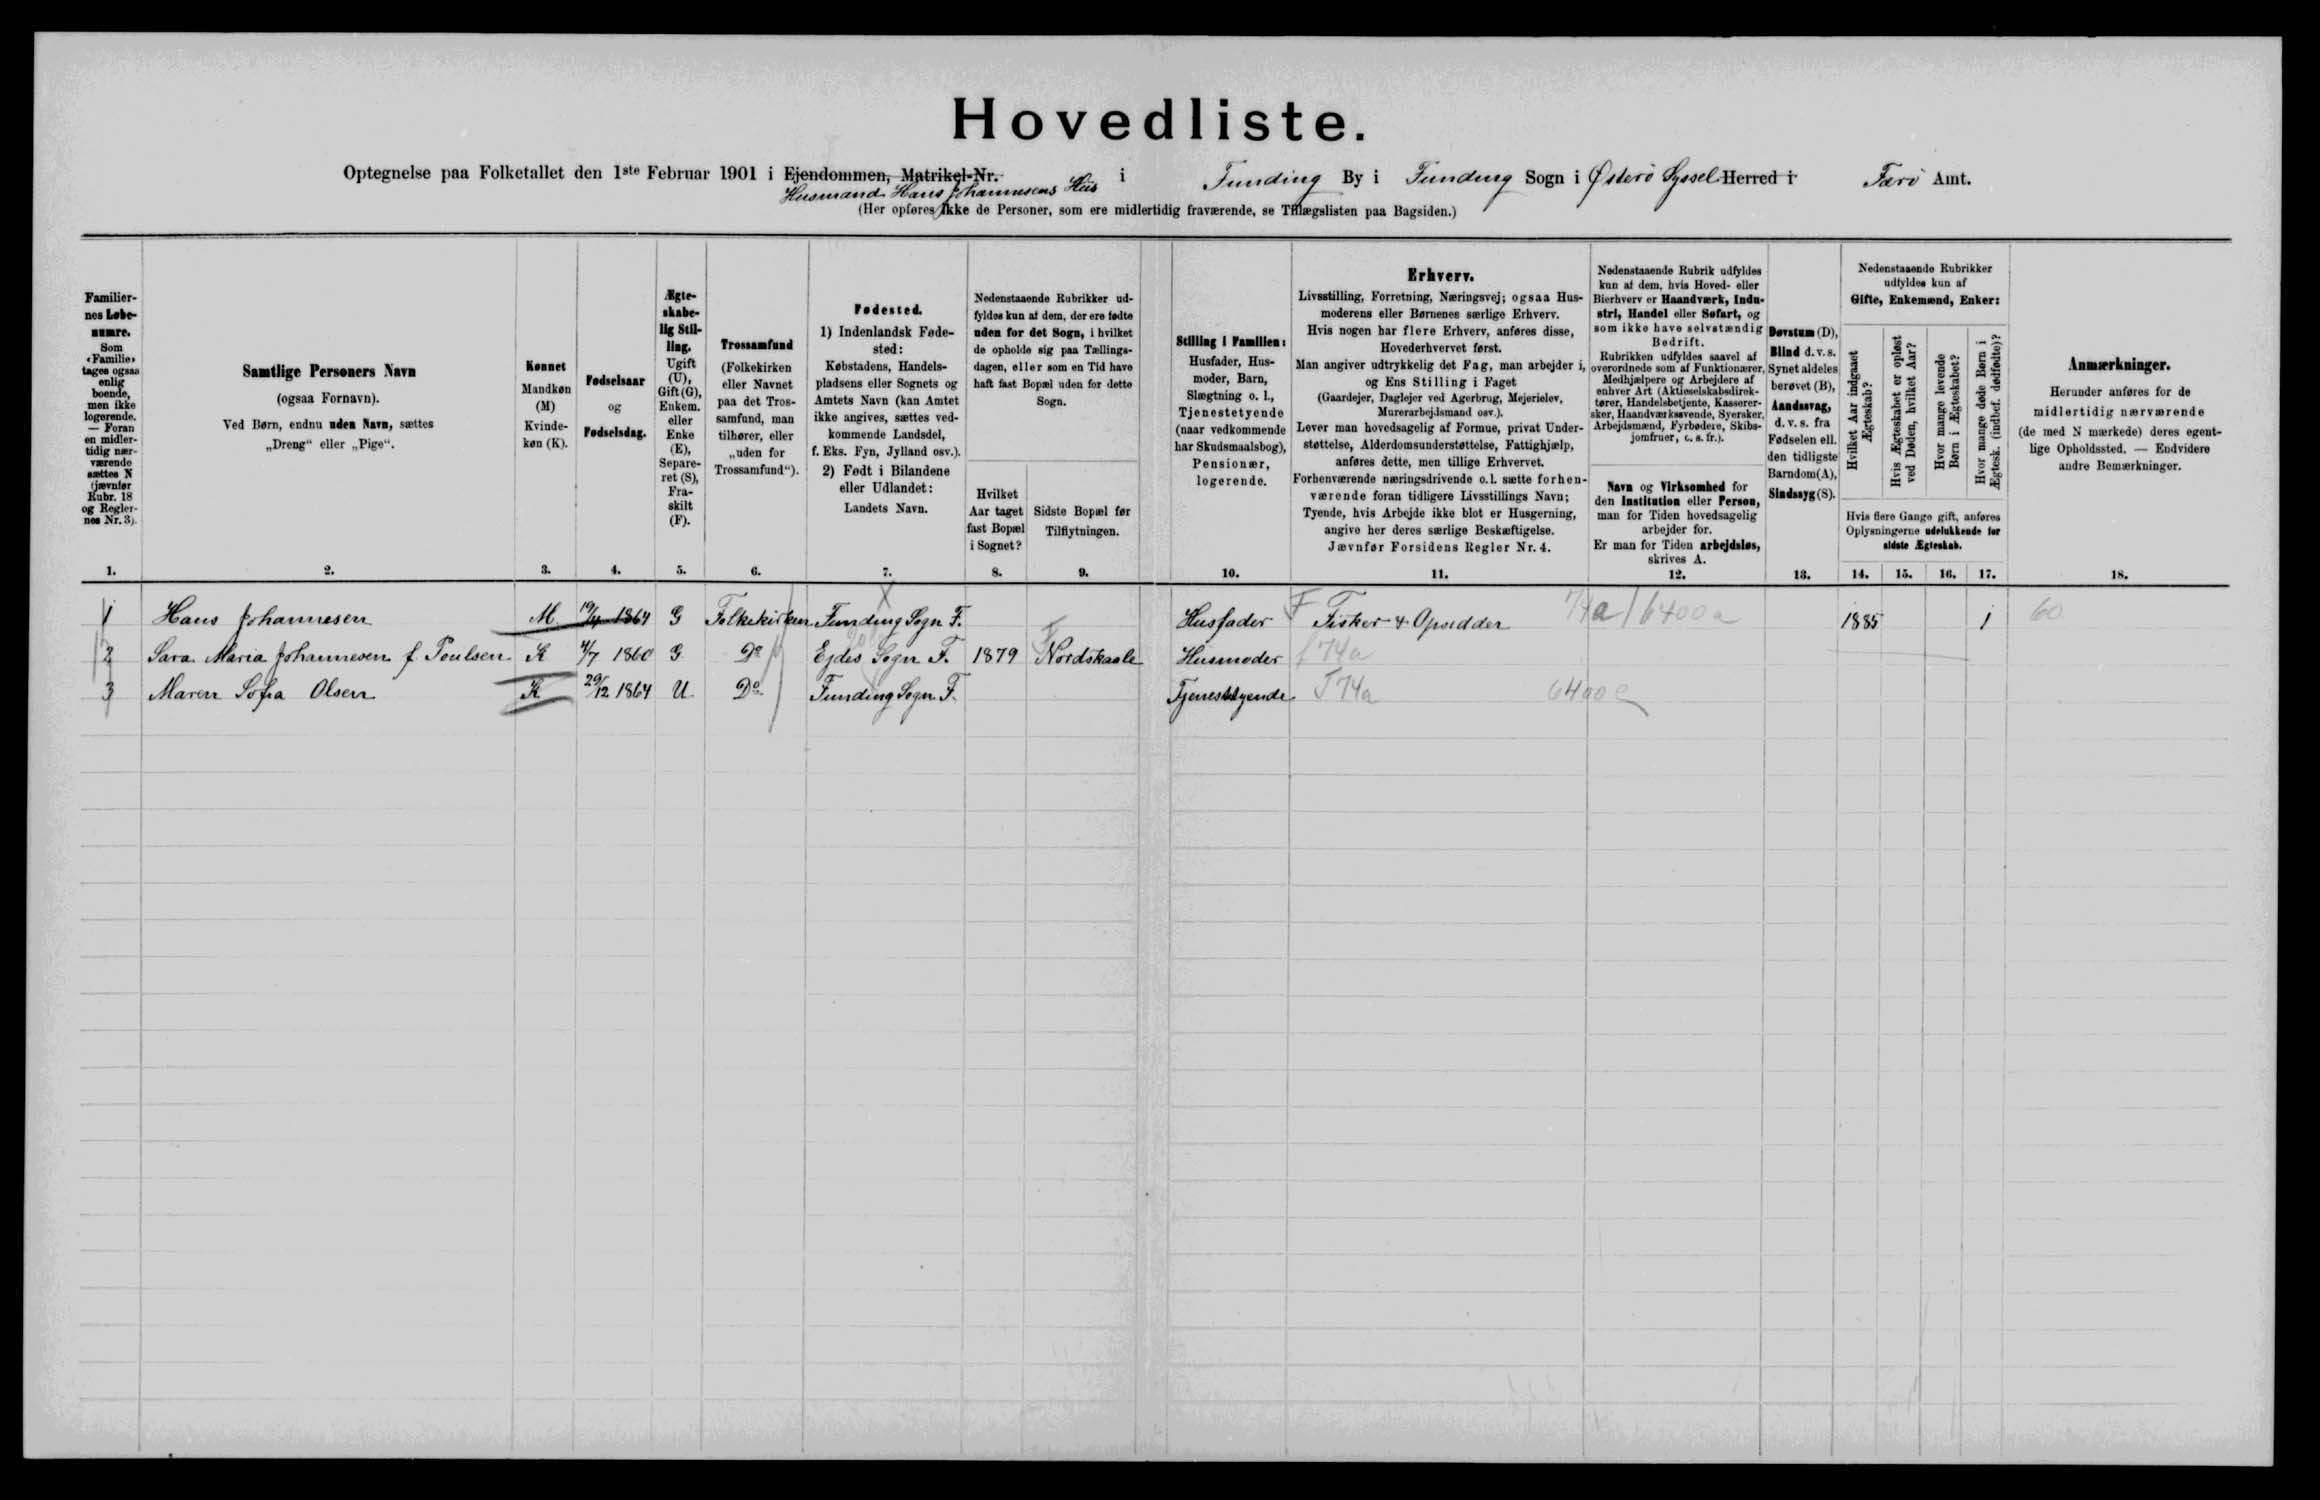 Hovedliste.
Optegnelse paa Folketallet den 1ste Februar 1901 i Ejendommen, Matrikel-Nr. i Funding By i Funding Sogn i Østerø Syssel Herred i Færø Amt.
Husmand Hans Johannesens Hus
(Her opføres ikke de Personer, som ere midlertidig fraværende, se Tillægslisten paa Bagsiden.)
Familier-
nes Løbe-
numre.
Som
«Familie»
tages ogsaa
enlig
boende,
men ikke
logerende.
— Foran
en midler-
tidig nær-
værende
sættes N
(jævnfør
Rubr. 18
og Regler-
nes Nr. 3).
1.
Samtlige Personers Navn
(ogsaa Fornavn).
Ved Børn, endnu uden Navn, sættes
„Dreng“ eller „Pige“.
2.
Kønnet
Mandkøn
(M)
Kvinde-
køn (K).
3.
Fødselsaar
og
Fødselsdag.
4.
Ægte-
skabe-
lig Stil-
ling.
Ugift
(U),
Gift (G),
Enkem.
eller
Enke
(E),
Separe-
ret (S),
Fra-
skilt
(F).
5.
Trossamfund
(Folkekirken
eller Navnet
paa det Tros-
samfund, man
tilhører, eller
„uden for
Trossamfund“).
6.
Fødested.
1) Indenlandsk Føde-
sted:
Købstadens, Handels-
pladsens eller Sognets og
Amtets Navn (kan Amtet
ikke angives, sættes ved-
kommende Landsdel,
f. Eks. Fyn, Jylland osv.).
2) Født i Bilandene
eller Udlandet:
Landets Navn.
7.
Nedenstaaende Rubrikker ud-
fyldes kun af dem, der ere fødte
uden for det Sogn, i hvilket
de opholde sig paa Tællings-
dagen, eller som en Tid have
haft fast Bopæl uden for dette
Sogn.
Hvilket
Aar taget
fast Bopæl
i Sognet?
8.
Sidste Bopæl før
Tilflytningen.
9.
Stilling i Familien:
Husfader, Hus-
moder, Barn,
Slægtning o. l.,
Tjenestetyende
(naar vedkommende
har Skudsmaalsbog),
Pensionær,
logerende.
10.
Erhverv.
Livsstilling, Forretning, Næringsvej; ogsaa Hus-
moderens eller Børnenes særlige Erhverv.
Hvis nogen har flere Erhverv, anføres disse,
Hovederhvervet først.
Man angiver udtrykkelig det Fag, man arbejder i,
og Ens Stilling i Faget
(Gaardejer, Daglejer ved Agerbrug, Mejerielev,
Murerarbejdsmand osv.).
Lever man hovedsagelig af Formue, privat Under-
støttelse, Alderdomsunderstøttelse, Fattighjælp,
anføres dette, men tillige Erhvervet.
Forhenværende næringsdrivende o. l. sætte forhen-
værende foran tidligere Livsstillings Navn;
Tyende, hvis Arbejde ikke blot er Husgerning,
angive her deres særlige Beskæftigelse.
Jævnfør Forsidens Regler Nr. 4.
11.
Nedenstaaende Rubrik udfyldes
kun af dem, hvis Hoved- eller
Bierhverv er Haandværk, Indu-
stri, Handel eller Søfart, og
som ikke have selvstændig
Bedrift.
Rubrikken udfyldes saavel af
overordnede som af Funktionærer,
Medhjælpere og Arbejdere af
enhver Art (Aktieselskabsdirek-
tører, Handelsbetjente, Kasserer-
sker, Haandværkssvende, Syersker,
Arbejdsmænd, Fyrbødere, Skibs-
jomfruer, o. s. fr.).
Navn og Virksomhed for
den Institution eller Person,
man for Tiden hovedsagelig
arbejder for.
Er man for Tiden arbejdsløs,
skrives A.
12.
Døvstum (D),
Blind d. v. s.
Synet aldeles
berøvet (B),
Aandssvag,
d. v. s. fra
Fødselen ell.
den tidligste
Barndom (A),
Sindssyg (S).
13.
Nedenstaaende Rubrikker
udfyldes kun af
Gifte, Enkemænd, Enker:
Hvilket Aar indgaaet
Ægteskab?
Hvis Ægteskabet er opløst
ved Døden, hvilket Aar?
Hvor mange levende
Børn i Ægteskabet?
Hvor mange døde Børn i
Ægtesk. (indbef. dødfødte)?
Hvis flere Gange gift, anføres
Oplysningerne udelukkende for
sidste Ægteskab.
14. 15. 16. 17.
Anmærkninger.
Herunder anføres for de
midlertidig nærværende
(de med N mærkede) deres egent-
lige Opholdssted. — Endvidere
andre Bemærkninger.
18.
1 Hans Johannesen M 19/4 1864 G Folkekirken Funding Sogn F. Husfader F Fisker & Opsidder 74a 6400a 1885 1 60
2 Sara Maria Johannesen f. Poulsen K 4/7 1860 G Do Ejdes Sogn F. 1879 Nordskaale Husmoder f 74a
3 Maren Sofia Olsen K 29/12 1864 U Do Funding Sogn F. Tjenestetyende T 74a 6400e